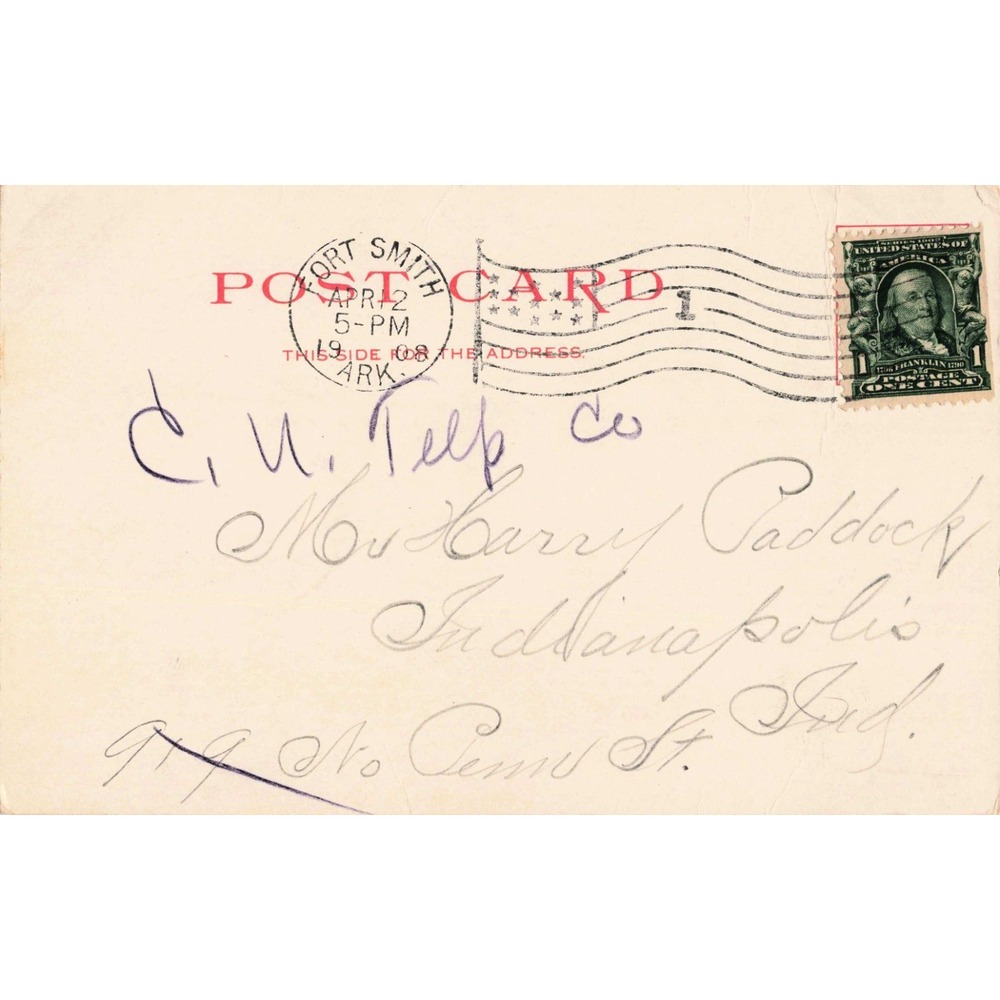 POST CARD
THIS SIDE FOR THE ADDRESS.
FORT SMITH
APR 12
5-PM
19 08
ARK.
1
UNITED STATES OF
AMERICA
1 FRANKLIN 1
POSTAGE
ONE CENT
C. U. Telp Co
Mr Harry Paddock
Indianapolis
Ind.
919 No Penn St.